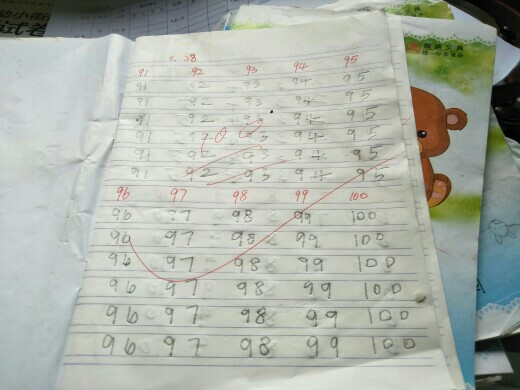 11.28
91 92 93 94 95
91 92 93 94 95
91 92 93 94 95
91 92 93 94 95
91 92 93 94 95
91 92 93 94 95
91 92 93 94 95
100
96 97 98 99 100
96 97 98 99 100
96 97 98 99 100
96 97 98 99 100
96 97 98 99 100
96 97 98 99 100
96 97 98 99 100